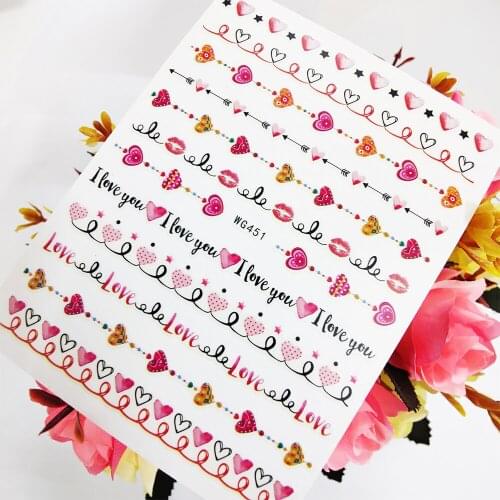 WG451
I love you I love you I love you I love you
Love Love Love Love Love